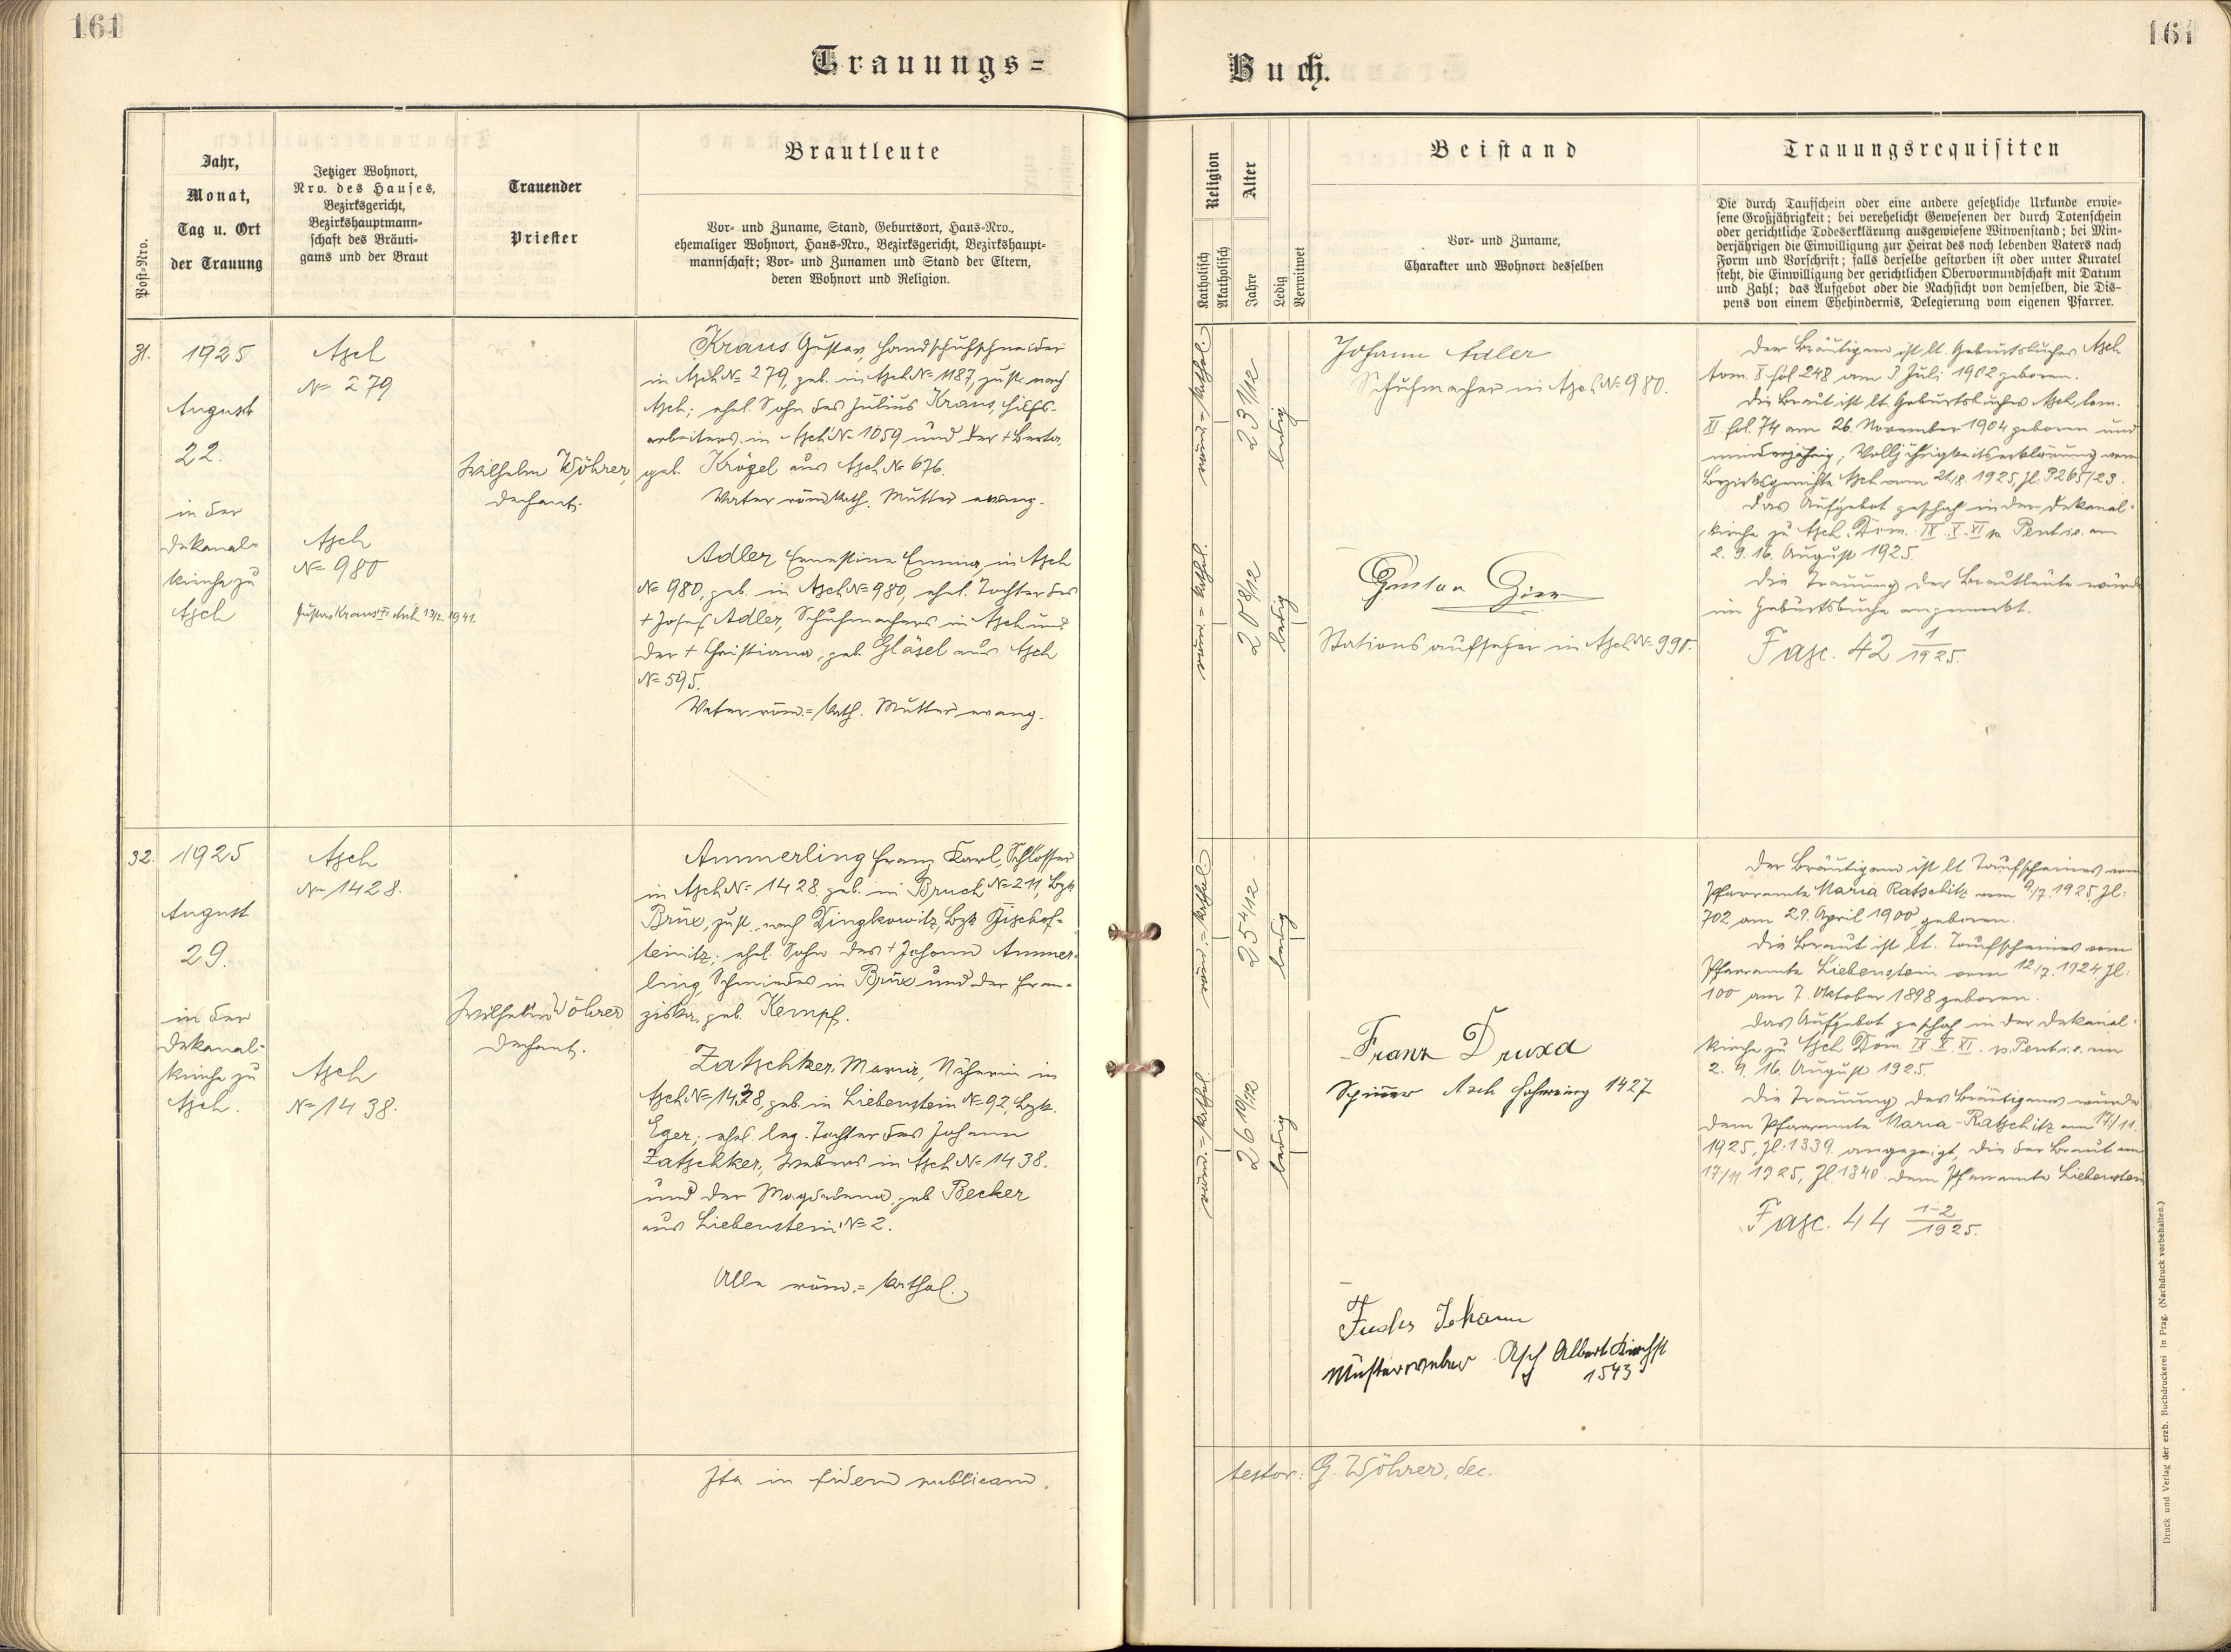 161
161
Trauungs=
Buch.
Post=Nro.
Jahr,
Monat,
Tag u. Ort
der Trauung
Jetziger Wohnort,
Nro. des Hauses,
Bezirksgericht,
Bezirkshauptmann=
schaft des Bräuti=
gams und der Braut
Trauender
Priester
Brautleute
Vor= und Zuname, Stand, Geburtsort, Haus=Nro.,
ehemaliger Wohnort, Haus=Nro., Bezirksgericht, Bezirkshaupt=
mannschaft; Vor= und Zunamen und Stand der Eltern,
deren Wohnort und Religion.
Religion
Katholisch
Akatholisch
Alter
Jahre
Ledig
Verwitwet
Beistand
Vor= und Zuname,
Charakter und Wohnort desselben
Trauungsrequisiten
Die durch Taufschein oder eine andere gesetzliche Urkunde erwie=
sene Großjährigkeit; bei verehelicht Gewesenen der durch Totenschein
oder gerichtliche Todeserklärung ausgewiesene Witwenstand; bei Min=
derjährigen die Einwilligung zur Heirat des noch lebenden Vaters nach
Form und Vorschrift; falls derselbe gestorben ist oder unter Kuratel
steht, die Einwilligung der gerichtlichen Obervormundschaft mit Datum
und Zahl; das Aufgebot oder die Nachsicht von demselben, die Dis=
pens von einem Ehehindernis, Delegierung vom eigenen Pfarrer.
31.
1925
August
22.
in der
Dekanal=
kirche zu
Asch
Asch
N= 279
Asch
N= 980
Gustav Kraus † Asch 13/2. 1941.
Wilhelm Wöhrer,
Dechant.
Kraus Gustav, Handschuhschneider
in Asch N= 279, geb. in Asch N= 1187, zust. nach
Asch; ehel. Sohn des Julius Kraus, Hilfs-
arbeiters in Asch N= 1059 und der + Berta,
geb. Krögel aus Asch N= 676.
Vater röm. kath. Mutter evang.
Adler Ernestine Emma, in Asch
N= 980, geb. in Asch N= 980, ehel. Tochter des
+ Josef Adler, Schuhmachers in Asch und
der + Christiana, geb. Gläsel aus Asch
N= 595.
Vater röm.= kath. Mutter evang.
röm.= kathol.
23 1/12
ledig
röm.= kathol.
20 8/12
ledig
Johann Adler
Schuhmacher in Asch N= 980.
Gustav
Stationsaufseher in Asch N= 990.
Der Bräutigam ist lt. Geburtsbuches Asch
tom. X fol 248 am 3 Juli 1902 geboren.
Die Braut ist lt. Geburtsbuches Asch tom.
XI. fol. 74 am 26. November 1904 geboren und
minderjährig; Volljährigkeitserklärung vom
Bezirksgerichte Asch vom 21./8. 1925, Zl. P265/23.
Das Aufgebot geschah in der Dekanal-
kirche zu Asch Dom. IX. X. XI p. Pent. i.e. am
2. 9. 16. August 1925.
Die Trauung der Brautleute wurde
im Geburtsbuche angemerkt.
Fasc. 42 1/1925.
32.
1925
August
29.
in der
Dekanal-
kirche zu
Asch.
Asch
N= 1428.
Asch
N= 1438.
Wilhelm Wöhrer
Dechant.
Ammerling Franz Karl, Schlosser
in Asch N= 1428, geb. in Bruch N= 211, Bzk
Brüx, zust. nach Dingkowitz, Bzk Bischof-
teinitz; ehel. Sohn des + Johann Ammer-
ling, Schmiedes in Brüx und der Fran-
ziska, geb. Kempf.
Zatschker Maria, Näherin in
Asch N= 1438, geb. in Liebenstein N= 92, Bzk.
Eger; ehel. leg. Tochter des Johann
Zatschker, Webers in Asch N= 1438.
und der Magdalena, geb Becker
aus Liebenstein N= 2.
Alle röm.= kathol.
röm.= kathol.
25 4/12
ledig
röm.= kathol.
26 10/12
ledig
Franz Druxa
Spinner Asch 1427
Fuchs Johann
Musterweber Asch Albert Kirchhst
1543
Der Bräutigam ist lt. Taufscheines vom
Pfarramte Maria Ratschitz vom 9/7. 1925, Zl:
702 am 29. April 1900 geboren.
Die Braut ist lt. Taufscheines vom
Pfarramte Liebenstein vom 12/7. 1924, Zl:
100 am 7. Oktober 1898 geboren.
Das Aufgebot geschah in der Dekanal-
kirche zu Asch Dom IX. X. XI. p. Pent. i.e. am
2. 9. 16. August 1925.
Die Trauung des Bräutigams wurde
dem Pfarramte Maria-Ratschitz am 17/11.
1925, Zl: 1339. angezeigt, die der Braut am
17/11 1925, Zl. 1340 dem Pfarramte Liebenstein
Fasc. 44 1-2/1925.
Ita in fidem publicam
testor: G. Wöhrer, dec.
Druck und Verlag der erzb. Buchdruckerei in Prag. (Nachdruck vorbehalten.)